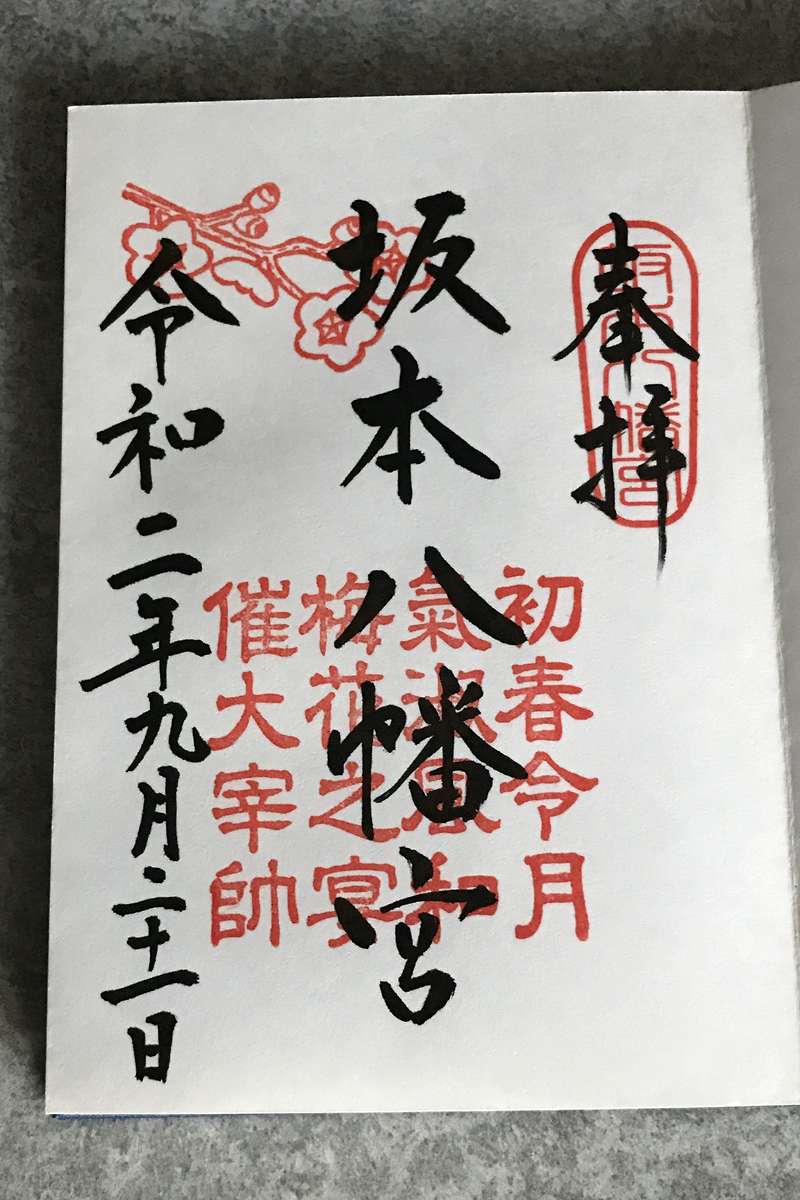 奉拝
坂本八幡宮
坂本八幡宮
初春令月
氣淑風和
梅花之宴
催大宰帥
令和二年九月二十一日